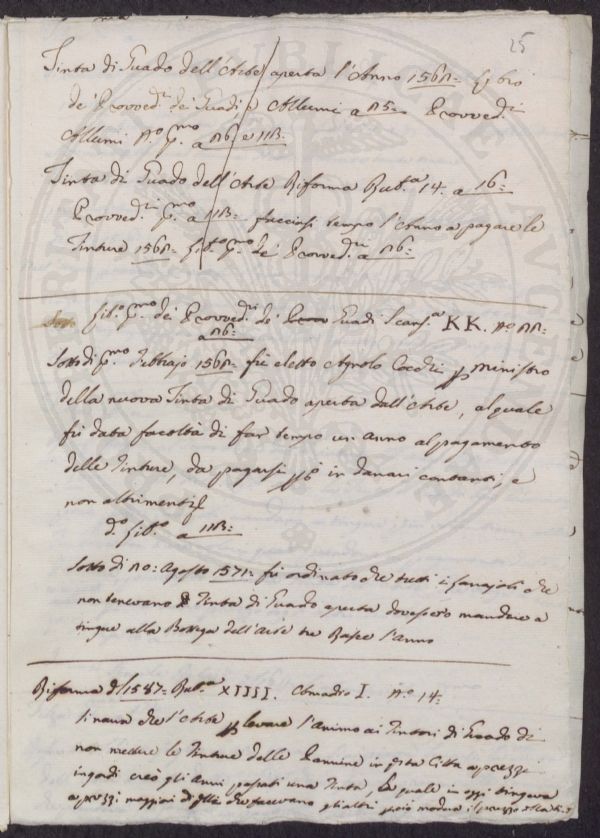 25
Tinta di Guado dell'Arte aperta l'Anno 1568= libro
de' Provved.ri de' Guadi, e Allumi a 85= Provved.ri
Allumi N.o p.mo a 86 e 113=
Tinta di Guado dell'Arte Riforma Rub.ca 14. a 16=
Provved.ri p.mo a 113= facciasi tempo l'Anno a pagare le
Tinture 1568= lib.o p.mo de' Provved.ri a 86=
lib.o p.mo de' Provved.ri de' Guadi Scanf.a KK. N.o
a 86=
Sotto di p.mo Febbrajo 1568= fù eletto Agnolo ministro
della nuova Tinta di Guado aperta dall'Arte, al quale
fù data facoltà di far tempo un anno al pagamento
delle Tinture, da pagarsi però in danari contanti, e
non altrimenti
d.o lib.o a 113=
Sotto di Agosto 1571= fù ordinato che tutti i lanajoli che
non tenevano Tinta di Guado aperta dovessero mandare a
tingere alla Bottega dell'Arte tre l'anno
Riforma del 1587= Rub.ca XIIII. Armadio I. N.o 14=
l'Arte levare l'animo ai Tintori di Guado di
non mettere le Tinture delle Pannine in q.sta Città a prezzi
ingordi creò gli Anni passati una Tinta, la quale in oggi tingeva
a prezzi maggiori di q.lli che facevano gli altri però il prezzo